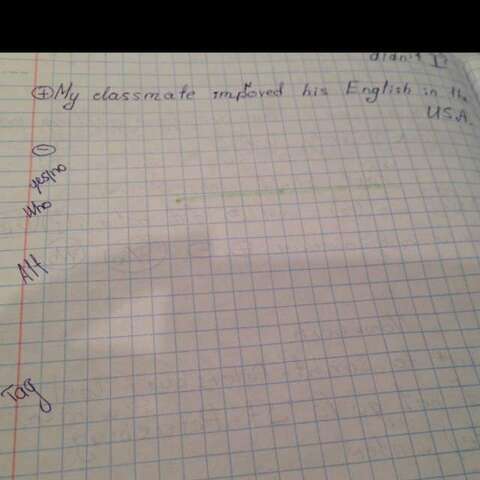 didn't I?
⊕ My classmate improved his English in the
USA.
⊖
yes/no
Who
Alt
Tag